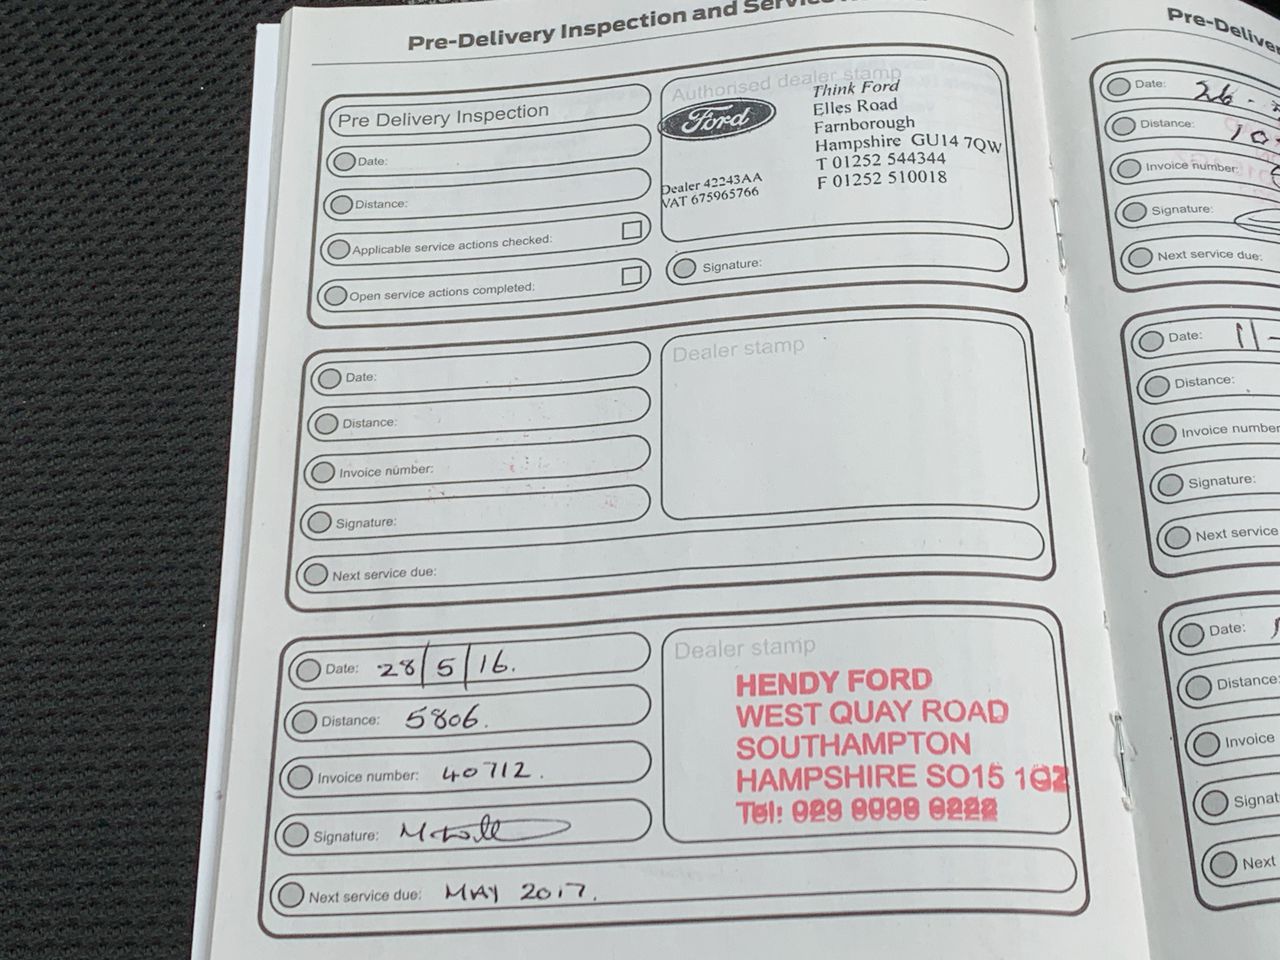 Pre-Delivery Inspection and Service
Pre Delivery Inspection
Date:
Distance:
Applicable service actions checked:
Open service actions completed:
Authorised dealer stamp
Ford
Think Ford
Elles Road
Farnborough
Hampshire GU14 7QW
T 01252 544344
F 01252 510018
Dealer 42243AA
VAT 675965766
Signature:
Date:
Distance:
Invoice number:
Signature:
Next service due:
Dealer stamp
Date: 28/5/16.
Distance: 5806.
Invoice number: 40712.
Signature:
Next service due: MAY 2017.
Dealer stamp
HENDY FORD
WEST QUAY ROAD
SOUTHAMPTON
HAMPSHIRE SO15
Tel: 029
Pre-Delive
Date: 26
Distance: 10
Invoice number:
Signature:
Next service due:
Date: 11-
Distance:
Invoice number
Signature:
Next service
Date:
Distance:
Invoice
Signat
Next